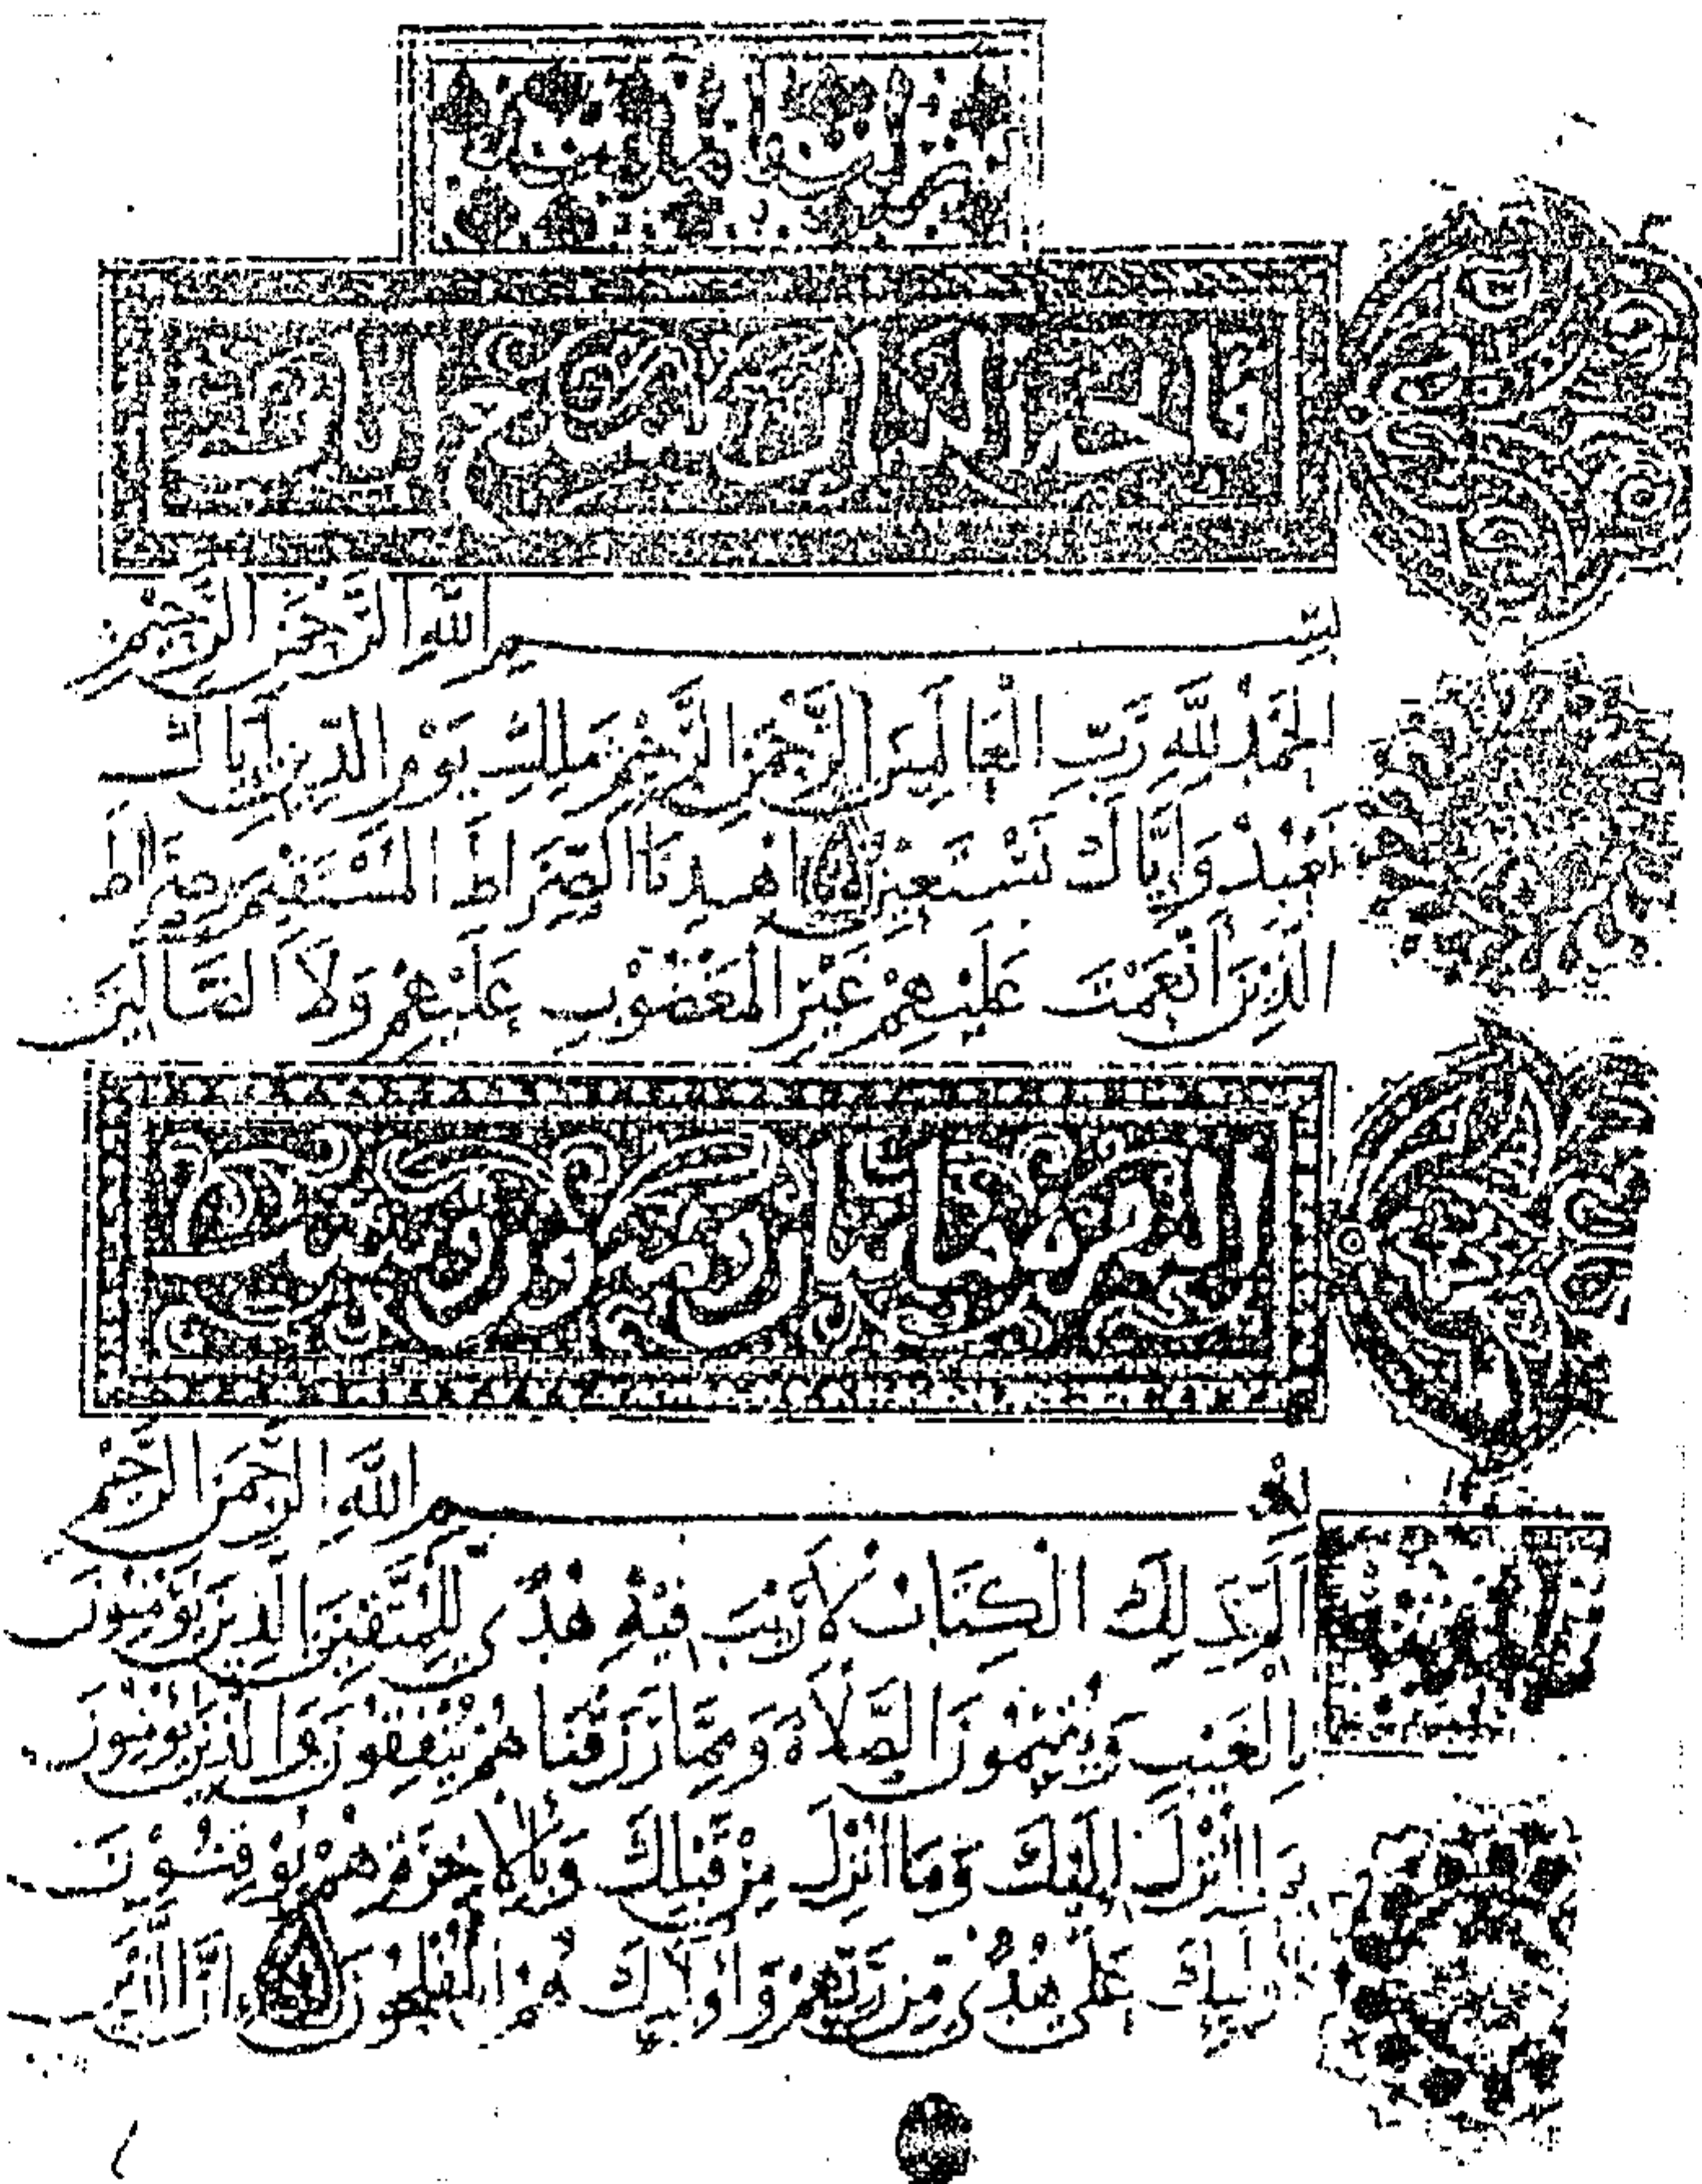 فاتحة الكتاب سبع ايات
بِسْمِ اللَّهِ الرَّحْمَنِ الرَّحِيمِ
الْحَمْدُ لِلَّهِ رَبِّ الْعَالَمِينَ الرَّحْمَنِ الرَّحِيمِ مَلِكِ يَوْمِ الدِّينِ إِيَّاكَ
نَعْبُدُ وَإِيَّاكَ نَسْتَعِينُ اهْدِنَا الصِّرَاطَ الْمُسْتَقِيمَ صِرَاطَ
الَّذِينَ أَنْعَمْتَ عَلَيْهِمْ غَيْرِ الْمَغْضُوبِ عَلَيْهِمْ وَلَا الضَّالِّينَ
البقرة مايتان وست
بِسْمِ اللَّهِ الرَّحْمَنِ الرَّحِيمِ
الٓمٓ ذَلِكَ الْكِتَابُ لَا رَيْبَ فِيهِ هُدًى لِلْمُتَّقِينَ الَّذِينَ يُؤْمِنُونَ
بِالْغَيْبِ وَيُقِيمُونَ الصَّلَاةَ وَمِمَّا رَزَقْنَاهُمْ يُنْفِقُونَ وَالَّذِينَ يُؤْمِنُونَ
بِمَا أُنْزِلَ إِلَيْكَ وَمَا أُنْزِلَ مِنْ قَبْلِكَ وَبِالْآخِرَةِ هُمْ يُوقِنُونَ
أُولَئِكَ عَلَى هُدًى مِنْ رَبِّهِمْ وَأُولَئِكَ هُمُ الْمُفْلِحُونَ إِنَّ الَّذِينَ